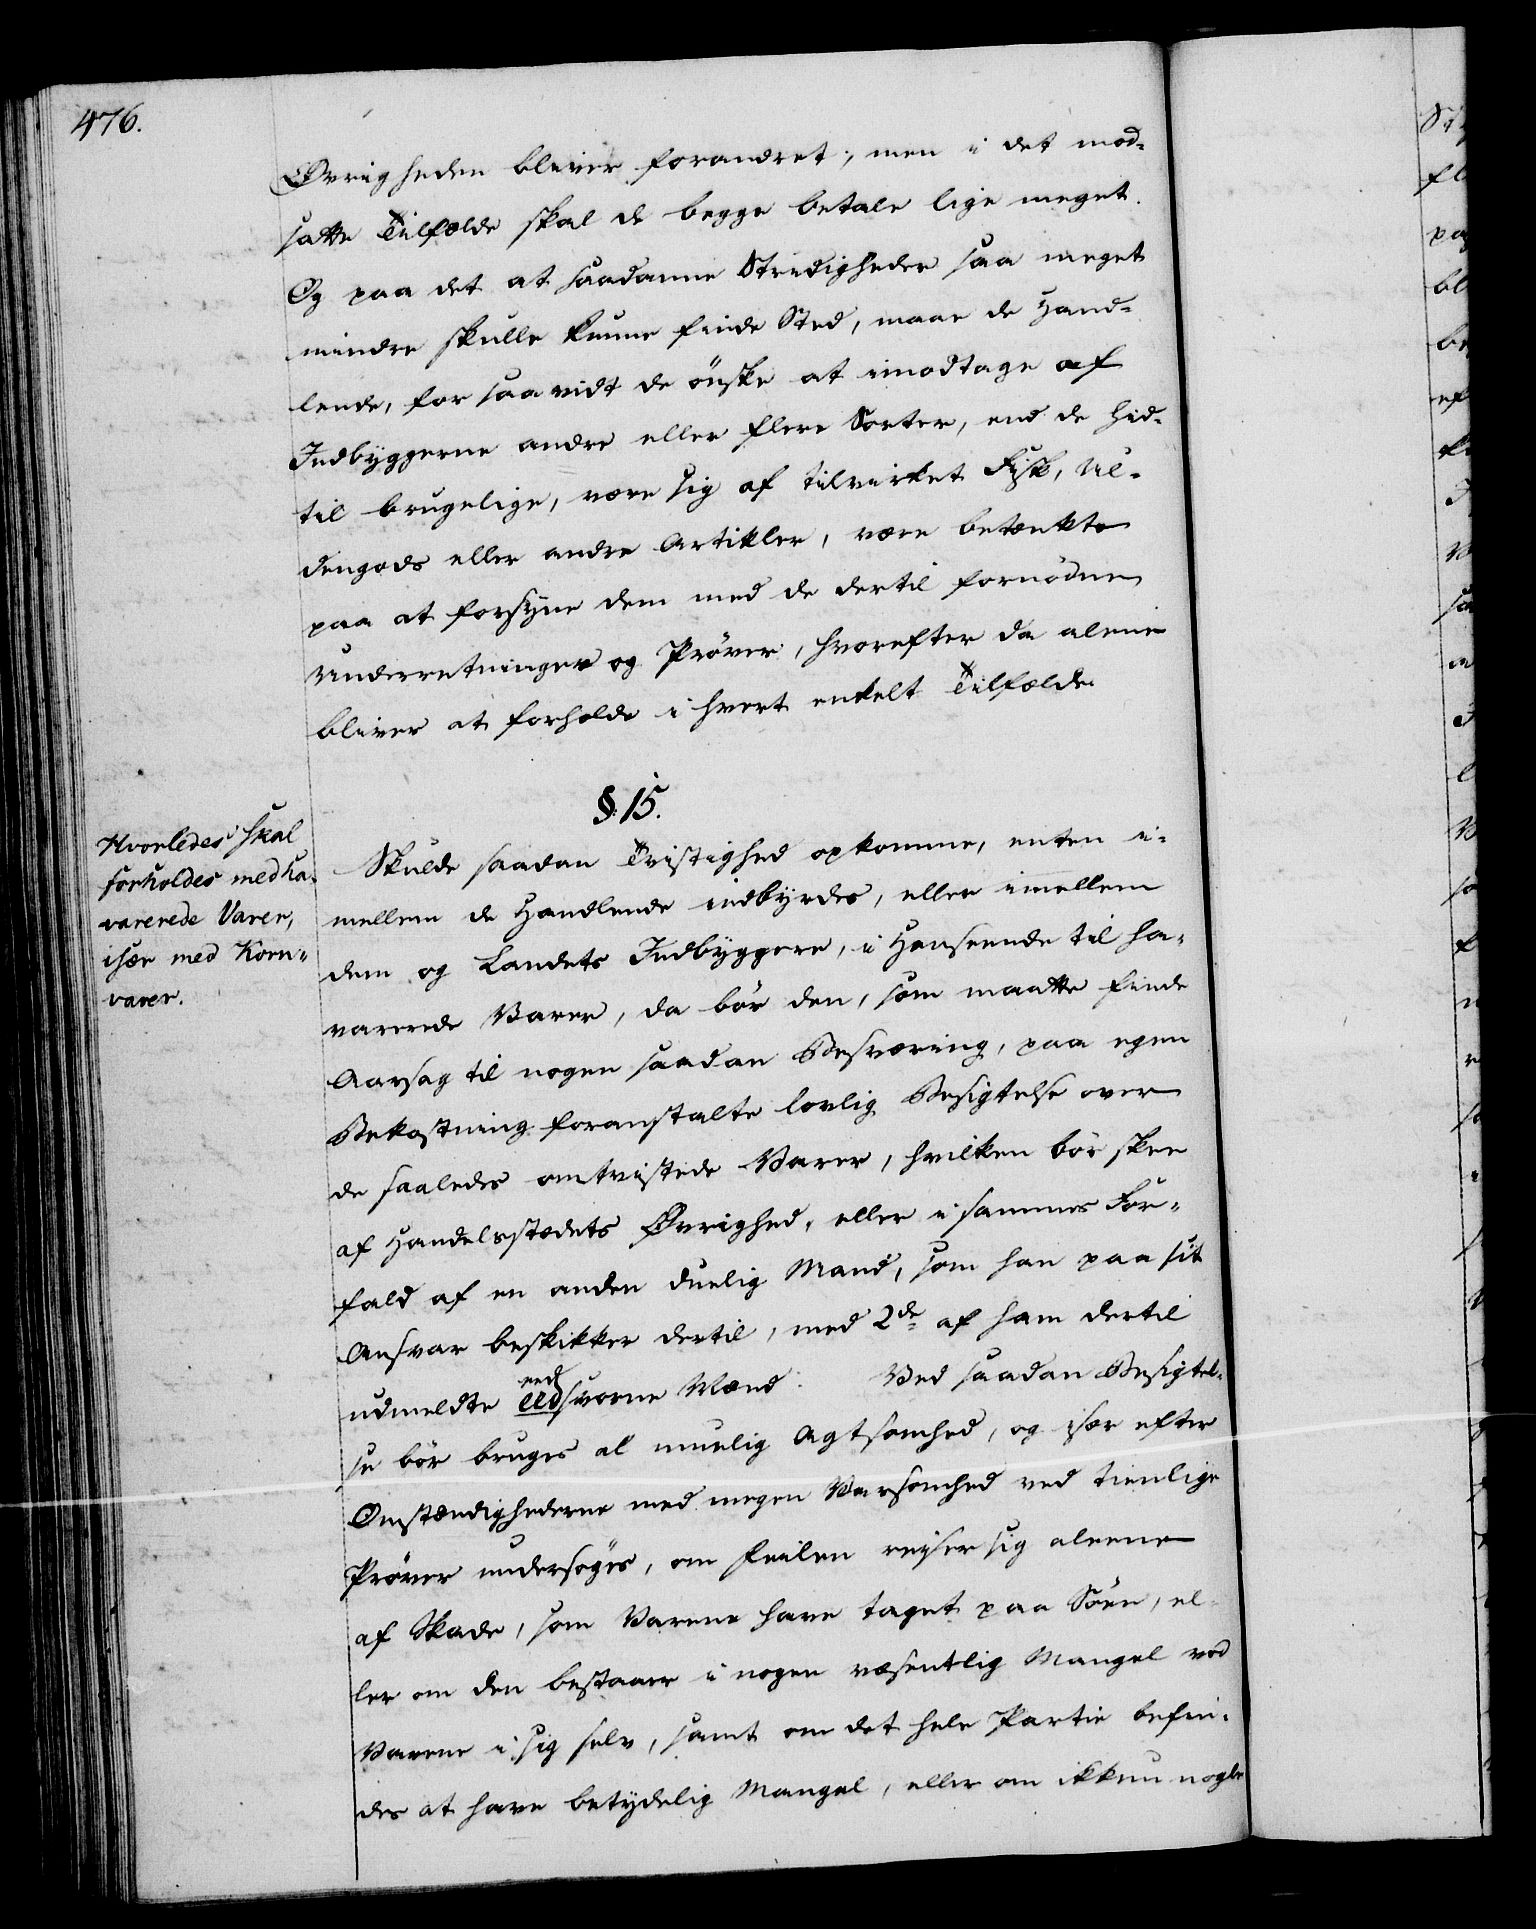 476.
Øvrigheden bliver forandret; men i det mod-
satte Tilfælde skal de begge betale lige meget.
Og paa det at saadanne Stridigheder saa meget
mindre skulle kunne finde Sted, maae de Hand-
lende, for saavidt de ønske at imodtage af
Indbyggerne andre eller flere Sorter, end de hid-
til brugelige, være sig af tilvirket Fisk, Ul-
dengods eller andre Artikler, være betænkte
paa at forsyne dem med de dertil fornødne
Underretninger og Prøver, hvorefter da alene
bliver at forholde i hvert enkelt Tilfælde.
§. 15.
Hvorledes skal
forholdes med ha-
varerede Varer,
især med Korn-
varer.
Skulde saadan Tvistighed opkomme, enten i-
mellem de Handlende indbyrdes, eller imellem
dem og Landets Indbyggere, i Henseende til ha-
varerede Varer, da bør den, som maatte finde
Aarsag til nogen saadan Besværing, paa egen
Bekostning foranstalte lovlig Besigtelse over
de saaledes omtvistede Varer, hvilken bør skee
af Handelsstedets Øvrighed, eller i sammes For-
fald af en anden duelig Mand, som han paa sit
Ansvar beskikker dertil, med 2de af ham dertil
udmeldte eedsvorne Mænd. Ved saadan Besigtel-
se bør bruges al muelig Agtsomhed, og især efter
Omstændighederne med megen Varsomhed ved tienlige
Prøver undersøges, om Feilen reiser sig alene
af Skade, som Varene have taget paa Søen, el-
ler om den bestaaer i nogen væsentlig Mangel ved
Varene i sig selv, samt om det hele Partie befin-
des at have betydelig Mangel, eller om ikkun nogle